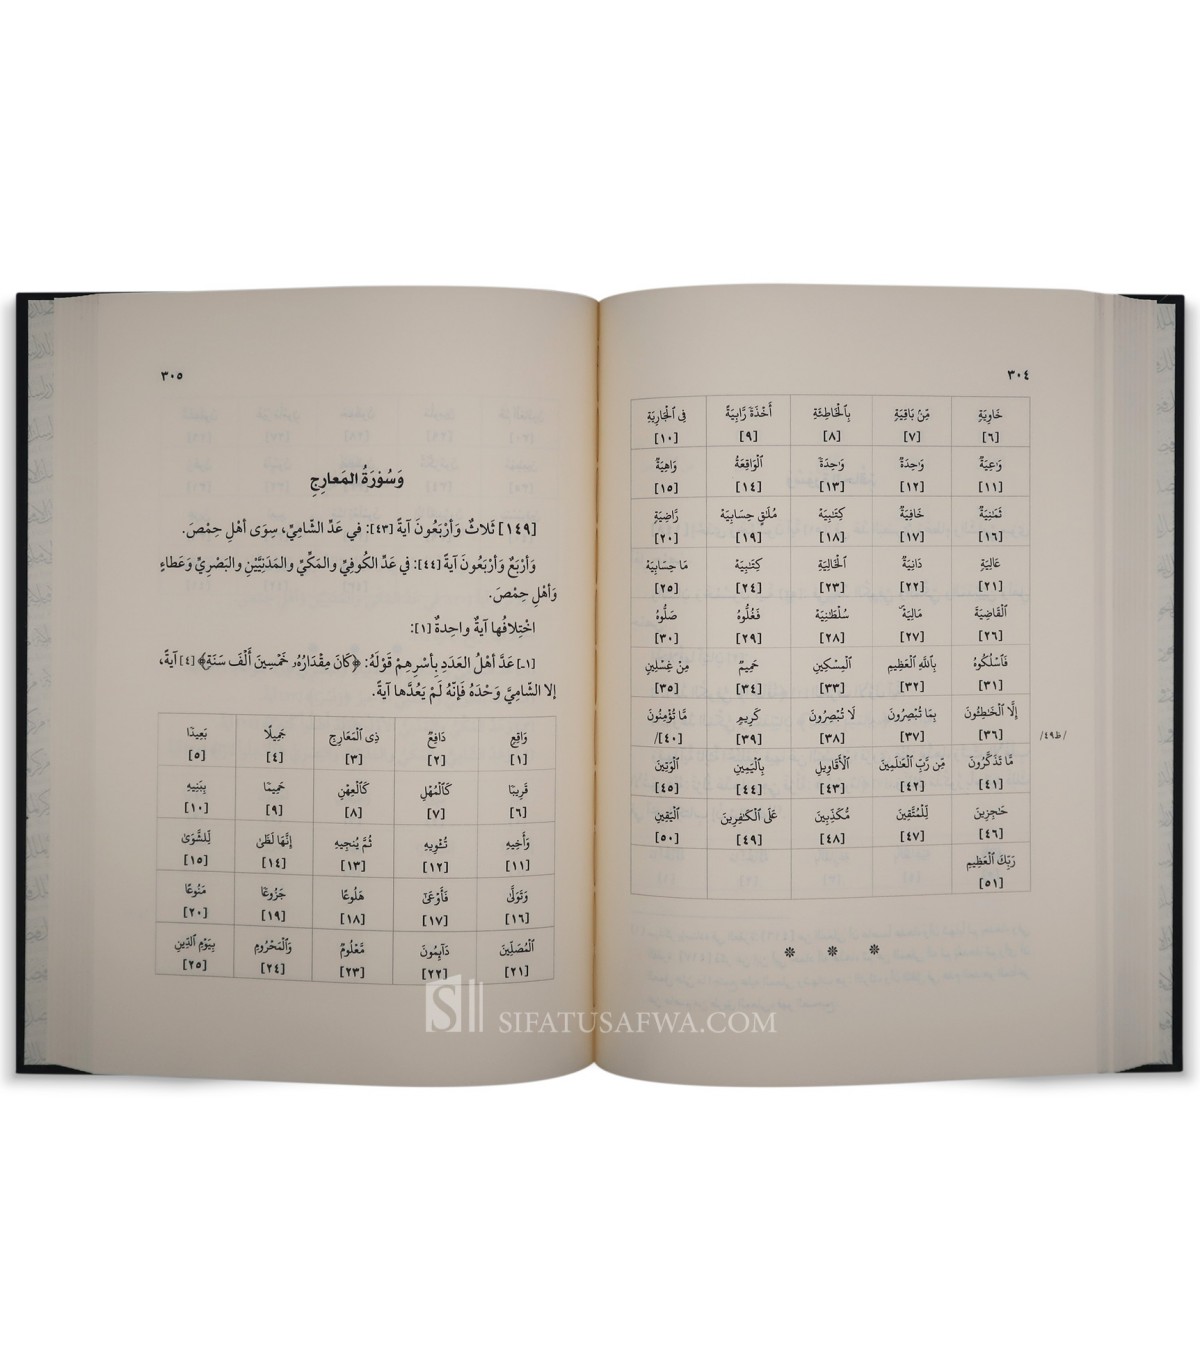 ٣٠٤
خَاوِيَةٍ مِّنۢ بَاقِيَةٍ بِٱلْخَاطِئَةِ أَخْذَةً رَّابِيَةً فِى ٱلْجَارِيَةِ
[٦] [٧] [٨] [٩] [١٠]
وَٰعِيَةٌ وَٰحِدَةٌ وَٰحِدَةً ٱلْوَاقِعَةُ وَاهِيَةٌ
[١١] [١٢] [١٣] [١٤] [١٥]
ثَمَٰنِيَةٌ خَافِيَةٌ كِتَٰبِيَهْ مُلَٰقٍ حِسَابِيَهْ رَّاضِيَةٍ
[١٦] [١٧] [١٨] [١٩] [٢٠]
عَالِيَةٍ دَانِيَةٌ ٱلْخَالِيَةِ كِتَٰبِيَهْ مَا حِسَابِيَهْ
[٢١] [٢٢] [٢٣] [٢٤] [٢٥]
ٱلْقَاضِيَةَ مَالِيَهْ سُلْطَٰنِيَهْ فَغُلُّوهُ صَلُّوهُ
[٢٦] [٢٧] [٢٨] [٢٩] [٣٠]
فَٱسْلُكُوهُ بِٱللَّهِ ٱلْعَظِيمِ ٱلْمِسْكِينِ حَمِيمٌ مِنْ غِسْلِينٍ
[٣١] [٣٢] [٣٣] [٣٤] [٣٥]
إِلَّا ٱلْخَٰطِـُٔونَ بِمَا تُبْصِرُونَ لَا تُبْصِرُونَ كَرِيمٍ مَّا تُؤْمِنُونَ
[٣٦] [٣٧] [٣٨] [٣٩] [٤٠]/ /ظ٤٩/
مَّا تَذَكَّرُونَ مِّن رَّبِّ ٱلْعَٰلَمِينَ ٱلْأَقَاوِيلِ بِٱلْيَمِينِ ٱلْوَتِينَ
[٤١] [٤٢] [٤٣] [٤٤] [٤٥]
حَٰجِزِينَ لِّلْمُتَّقِينَ مُّكَذِّبِينَ عَلَى ٱلْكَٰفِرِينَ ٱلْيَقِينِ
[٤٦] [٤٧] [٤٨] [٤٩] [٥٠]
رَبِّكَ ٱلْعَظِيمِ
[٥١]
* * *
٣٠٥
وَسُوْرَةُ المَعارِجِ
[١٤٩] ثَلاثٌ وَأرْبَعُونَ آيةً [٤٣]: في عَدِّ الشّامِيِّ، سِوَى أهْلِ حِمْصَ.
وَأرْبَعٌ وَأرْبَعُونَ آيةً [٤٤]: في عَدِّ الكُوفِيِّ والمَكِّيِّ والمَدَنِيَّيْنِ والبَصْرِيِّ وَعَطاءٍ
وَأهْلِ حِمْصَ.
اخْتِلافُها آيةٌ واحِدةٌ [١]:
[١ـ] عَدَّ أهْلُ العَدَدِ بِأسْرِهِمْ قَوْلَهُ: ﴿كَانَ مِقْدَارُهُۥ خَمْسِينَ أَلْفَ سَنَةٍ﴾ [٤] آيةً،
إلا الشّامِيَّ وَحْدَهُ فَإنّهُ لَمْ يَعُدَّها آيةً.
وَاقِعٍ دَافِعٌ ذِى ٱلْمَعَارِجِ جَمِيلًا بَعِيدًا
[١] [٢] [٣] [٤] [٥]
قَرِيبًا كَٱلْمُهْلِ كَٱلْعِهْنِ حَمِيمًا بِبَنِيهِ
[٦] [٧] [٨] [٩] [١٠]
وَأَخِيهِ تُـْٔوِيهِ ثُمَّ يُنجِيهِ إِنَّهَا لَظَىٰ لِّلشَّوَىٰ
[١١] [١٢] [١٣] [١٤] [١٥]
وَتَوَلَّىٰ فَأَوْعَىٰٓ هَلُوعًا جَزُوعًا مَنُوعًا
[١٦] [١٧] [١٨] [١٩] [٢٠]
ٱلْمُصَلِّينَ دَآئِمُونَ مَّعْلُومٌ وَٱلْمَحْرُومِ بِيَوْمِ ٱلدِّينِ
[٢١] [٢٢] [٢٣] [٢٤] [٢٥]
SIFATUSAFWA.COM